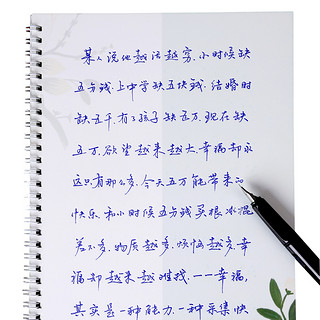 某人说他越活越穷,小时候缺
五分钱,上中学缺五块钱,结婚时
缺五千,有了孩子缺五万,现在缺
五万,欲望越来越大,幸福却永
远只有那么多,今天五万能带来的
快乐和小时候五分钱买根冰混
差不多,物质越多,烦恼越多,幸
福却越来越难找,一一幸福,
其实是一种能力,一种采集快